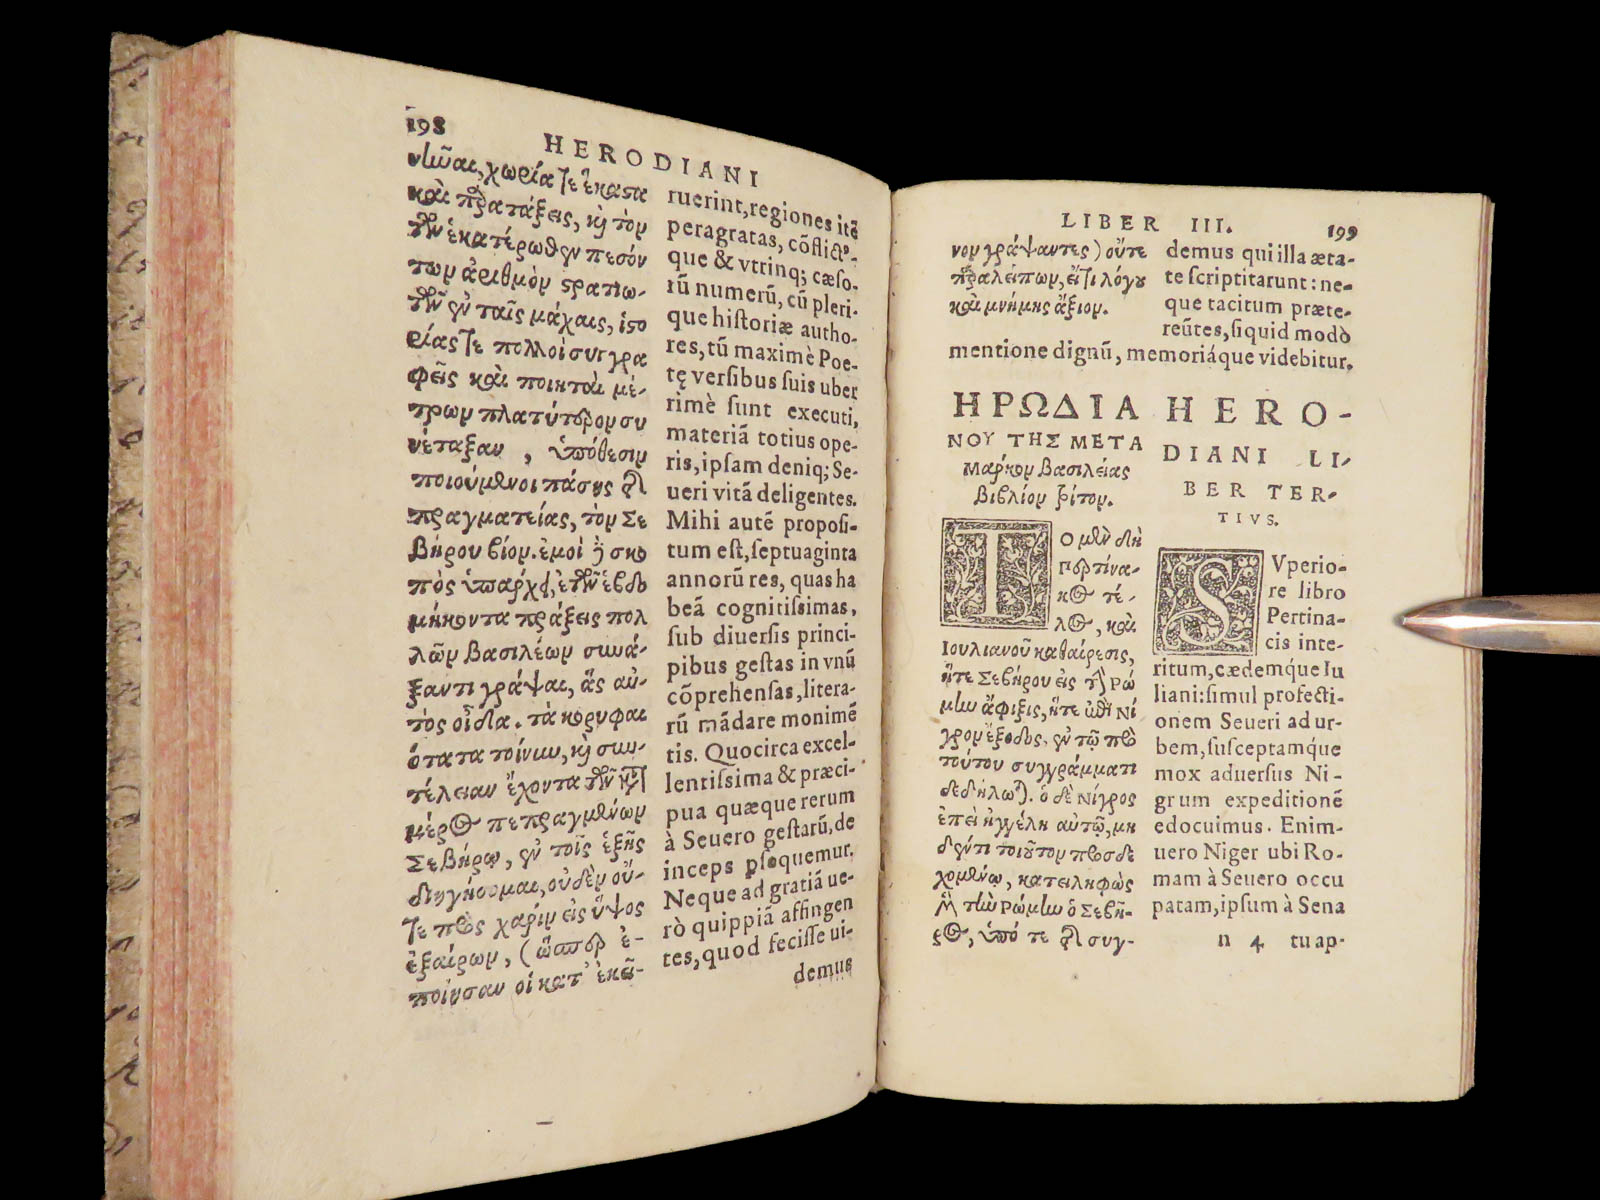 198
HERODIANI
νίῶαι, χωρία τε ἕκαστα
καὶ παρατάξεις, καὶ τὸν
τῶν ἑκατέρωθεν πεσόν
των ἀριθμὸν στρατιω-
τῶν ἐν ταῖς μάχαις, ἱστο
ρίας τε πολλοὶ συγγρα
φεῖς καὶ ποιηταὶ μέ-
τρων πλατύτερον συ
νέταξαν, ὑπόθεσιν
ποιούμενοι πάσης τῆς
πραγματείας, τὸν Σε
βήρου βίον. ἐμοὶ δὲ σκο
πὸς ὑπάρχει, ἐτῶν ἑβδο
μήκοντα πράξεις πολ
λῶν βασιλέων συνά-
ξαντι γράψαι, ἃς αὐ-
τὸς οἶδα. τὰ κορυφαι
ότατα τοίνυν, καὶ συν-
τέλειαν ἔχοντα τῶν κατὰ
μέρος πεπραγμένων
Σεβήρῳ, ἐν τοῖς ἑξῆς
διηγήσομαι, οὐδὲν οὔ-
τε πρὸς χάριν εἰς ὕψος
ἐξαίρων, (ὥσπερ ἐ-
ποίησαν οἱ κατ' ἐκεῖ-
ruerint, regiones itẽ
peragratas, cõflictº-
que & vtrinq; cæso-
rũ numerũ, cũ pleri-
que historiæ autho-
res, tũ maximè Poe-
tę versibus suis uber
rimè sunt executi,
materiã totius ope-
ris, ipsam deniq; Se-
ueri vitã deligentes.
Mihi autẽ proposi-
tum est, septuaginta
annorũ res, quas ha
beã cognitissimas,
sub diuersis princi-
pibus gestas in vnũ
cõprehensas, litera-
rũ mãdare monimẽ
tis. Quocirca excel-
lentissima & præci-
pua quæque rerum
à Seuero gestarũ, de
inceps psequemur.
Neque ad gratiã ue-
rò quippiã affingen
tes, quod fecisse ui-
demus
LIBER III.
199
νον γράψαντες) οὔτε
παραλείπων, εἴ τι λόγου
καὶ μνήμης ἄξιον.
demus qui illa æta-
te scriptitarunt: ne-
que tacitum præte-
reũtes, siquid modò
mentione dignũ, memoriáque videbitur.
ΗΡΩΔΙΑ
ΝΟΥ ΤΗΣ ΜΕΤΑ
Μάρκον βασιλείας
βιβλίον τρίτον.
ΤΟ μὲν δὴ
Περτίνα-
κος τέ-
λος, καὶ
Ἰουλιανοῦ καθαίρεσις,
ἥτε Σεβήρου εἰς τὴν Ρώ
μην ἄφιξις, ἥτε ἐπὶ Νί
γρον ἔξοδος, ἐν τῷ πρὸ
τούτου συγγράμματι
δεδήλωται. ὁ δὲ Νίγρος
ἐπεὶ ἠγγέλη αὐτῷ, μη
δέν τι τοιοῦτον προσδε
χομένῳ, κατειληφὼς
μὲν τὴν Ρώμην ὁ Σεβῆ-
ρος, ὑπό τε τῆς συγ-
HERO-
DIANI LI-
BER TER-
TIVS.
SVperio-
re libro
Pertina-
cis inte-
ritum, cædemq́ue Iu
liani: simul profecti-
onem Seueri ad ur-
bem, susceptamq́ue
mox aduersus Ni-
grum expeditionẽ
edocuimus. Enim-
uero Niger ubi Ro-
mam à Seuero occu
patam, ipsum à Sena
n 4 tu ap-